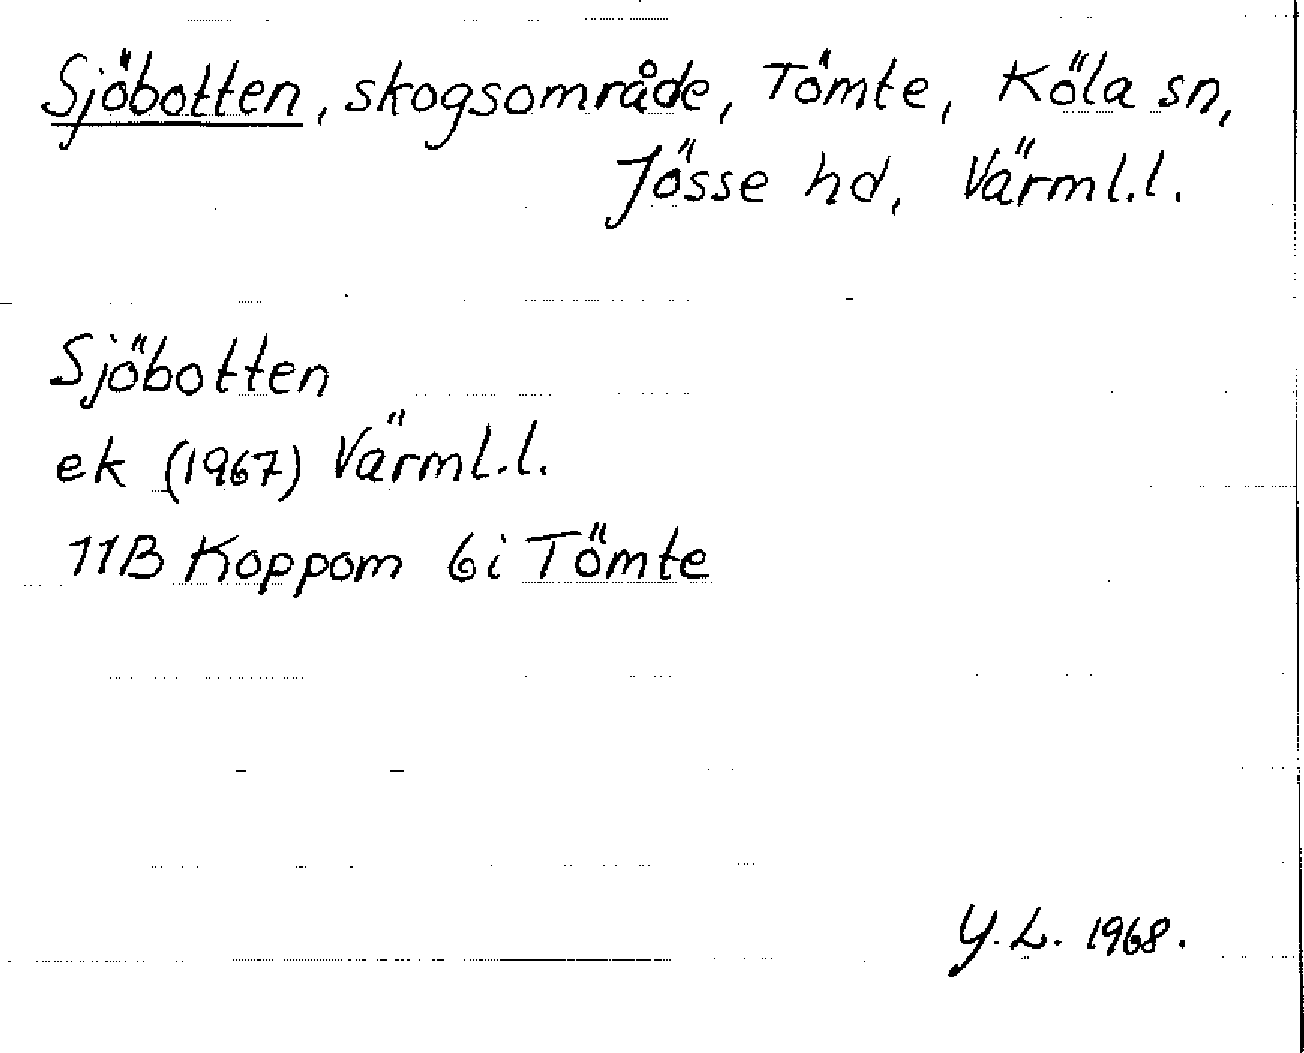 Sjöbotten, skogsområde, Tömte, Köla sn,
Jösse hd, Värml.l.
Sjöbotten
ek (1967) Värml.l.
11B Koppom 6i Tömte
Y.L. 1968.